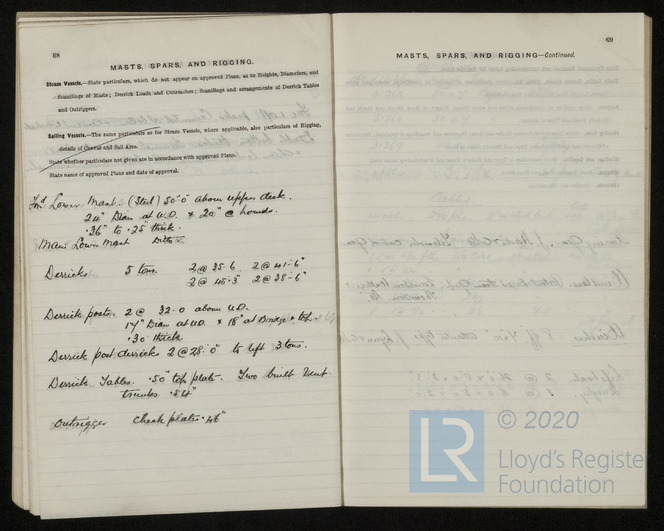 68
MASTS, SPARS, AND RIGGING.
Steam Vessels.—State particulars, which do not appear on approved Plans, as to Heights, Diameters, and
Scantlings of Masts; Derrick Loads and Outreaches; Scantlings and arrangements of Derrick Tables
and Outriggers.
Sailing Vessels.—The same particulars as for Steam Vessels, where applicable, also particulars of Rigging,
details of Canvas and Sail Area.
State whether particulars not given are in accordance with approved Plans.
State name of approved Plans and date of approval.
Lower Mast (Steel) 50'-0" above upper deck.
24" Diam at U.D. & 20" @ hounds.
.36" to .25" thick.
Main Lower Mast Ditto
Derricks 5 tons. 2 @ 35-6. 2 @ 41-6"
2 @ 45-3" 2 @ 38-6"
Derrick posts 2 @ 32-0 above U.D.
Diam at U.D. & 18" at Bridge & top.
.30 thick.
Derrick post derricks 2 @ 28'-0" to lift 3 tons.
Derrick Tables. .50" top plate. Two built Vent
trunks .54"
Outrigger Cheek plates .46"
69
MASTS, SPARS, AND RIGGING—Continued.
LR
© 2020
Lloyd's Register
Foundation